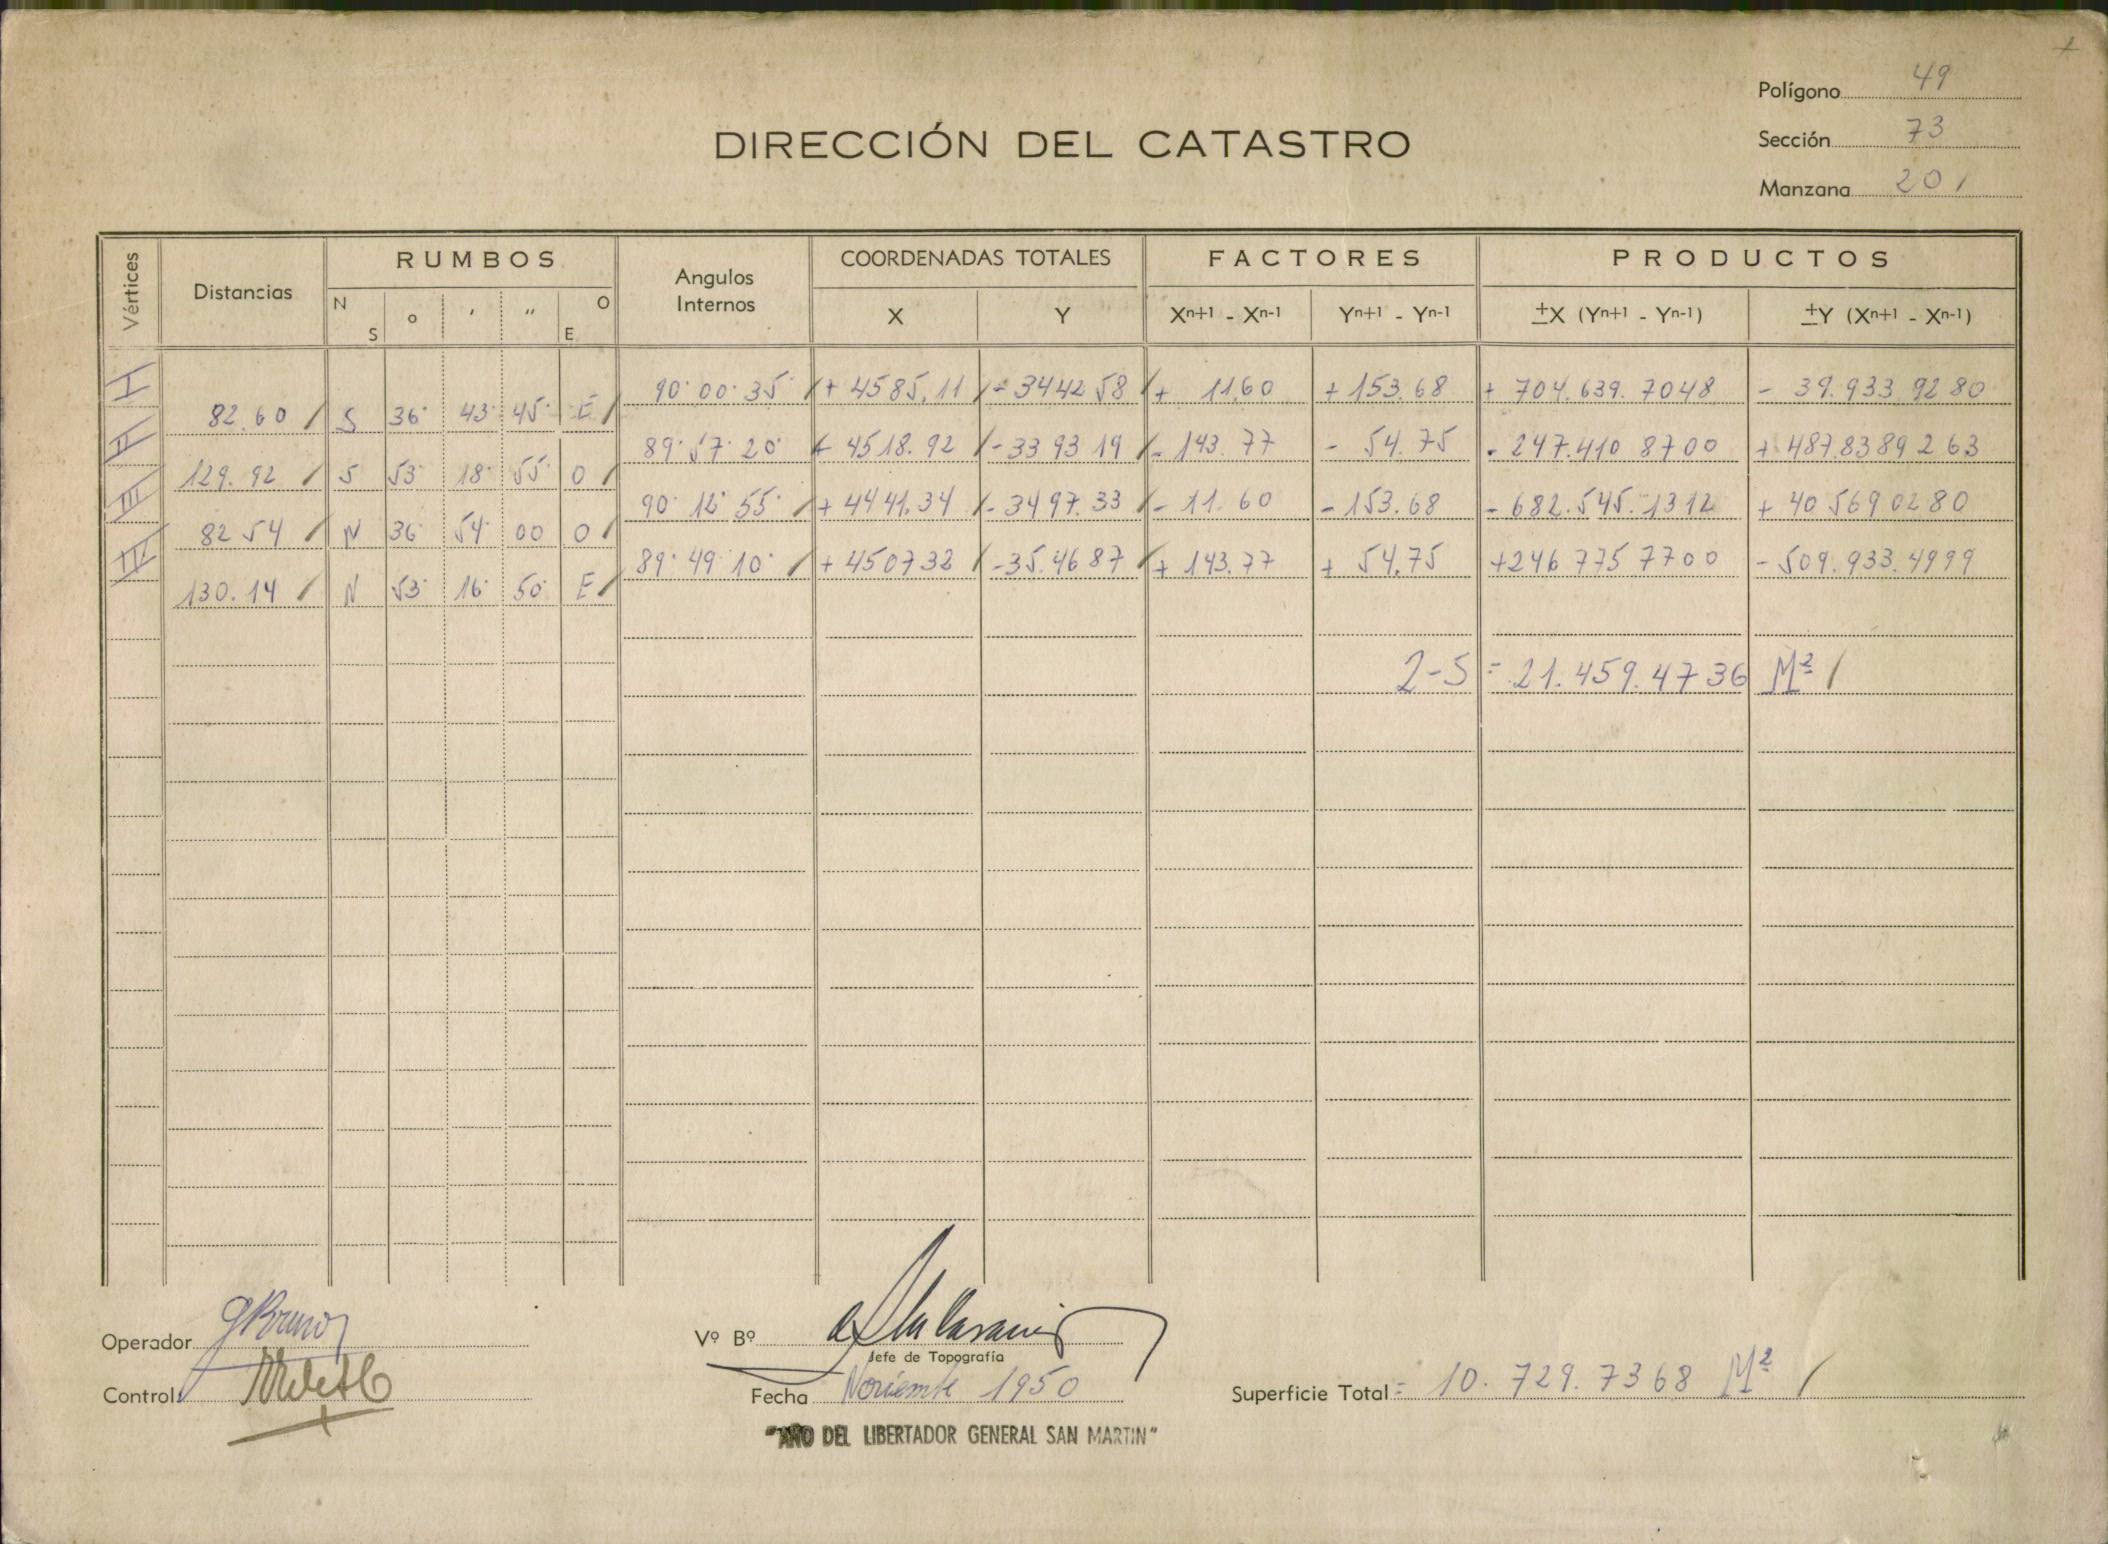 Polígono 49
DIRECCIÓN DEL CATASTRO
Sección 73
Manzana 201
Vértices Distancias RUMBOS Angulos Internos COORDENADAS TOTALES FACTORES PRODUCTOS
N S o ' " O E X Y Xn+1 - Xn-1 Yn+1 - Yn-1 ±X (Yn+1 - Yn-1) ±Y (Xn+1 - Xn-1)
I 90° 00' 35" + 4585,11 - 3442 58 + 11,60 + 153.68 + 704.639.7048 - 39.933 92 80
82.60 S 36° 43' 45" E
II 89° 57' 20" + 4518.92 - 33 93 19 - 143.77 - 54.75 - 247.410 8700 + 487.8389 2 63
129.92 S 53° 18' 55" O
III 90° 12' 55" + 4441,34 - 3497.33 - 11.60 - 153.68 - 682.545.1312 + 40 569 02 80
82 54 N 36° 54' 00 O
IV 89° 49' 10" + 450732 - 35.46 87 + 143.77 + 54,75 + 246 775 7700 - 509.933.4999
130.14 N 53° 16' 50" E
2-S = 21.459.4736 M²
Operador GBruno
Vº Bº
Jefe de Topografía
Control:
Fecha Noviembe 1950
Superficie Total = 10.729.7368 M²
"AÑO DEL LIBERTADOR GENERAL SAN MARTIN"